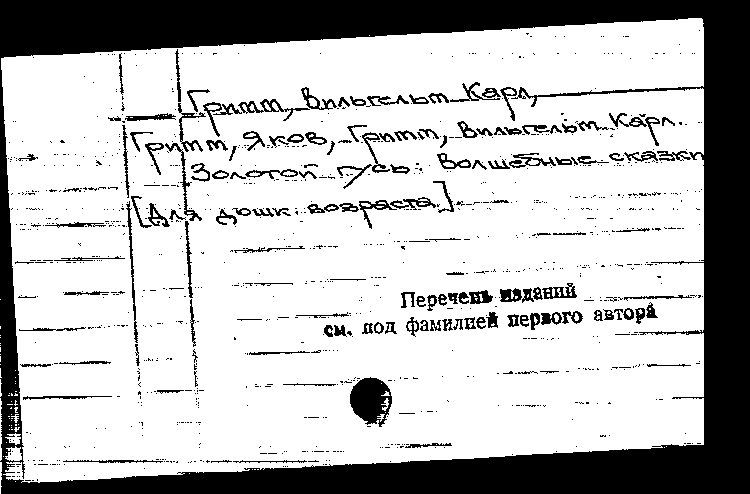 Гримм, Вильгельм Карл,
Гримм, Яков, Гримм, Вильгельм Карл.
Золотой гусь: Волшебные сказки
[Для дошк. возраста].
Перечень изданий
см. под фамилией первого автора